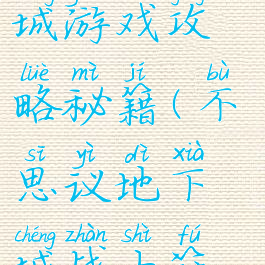 城游戏攻
lüè mì jí bù
略秘籍(不
sī yì dì xià
思议地下
chéng zhàn shì fú